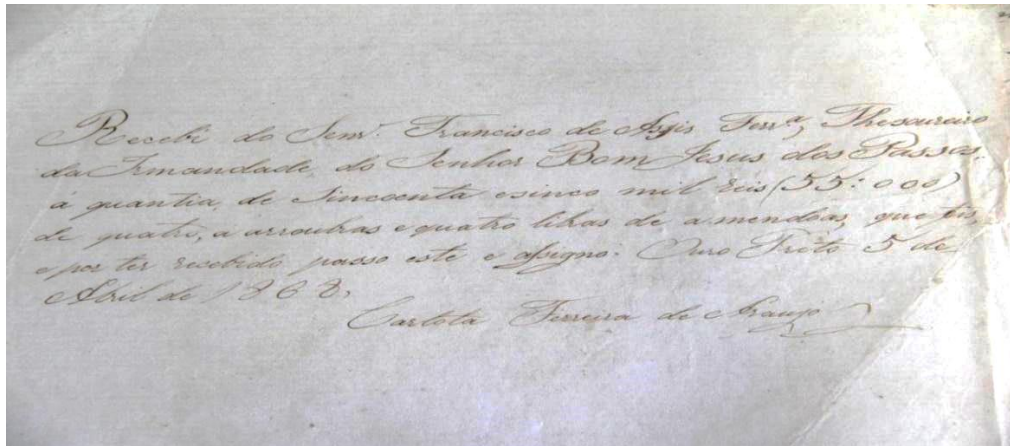 Recebi do Senr. Francisco de Assis Ferrª, Thesoureiro
da Irmandade do Senhor Bom Jesus dos Passos,
a quantia, de Sincoenta esinco mil reis (55:000)
de quatro, a arroubas e quatro libras de amendoas, que fis,
e por ter recebido passo este e assigno. Ouro Preto 5 de
Abril de 1868.
Carlota Ferreira de Araujo